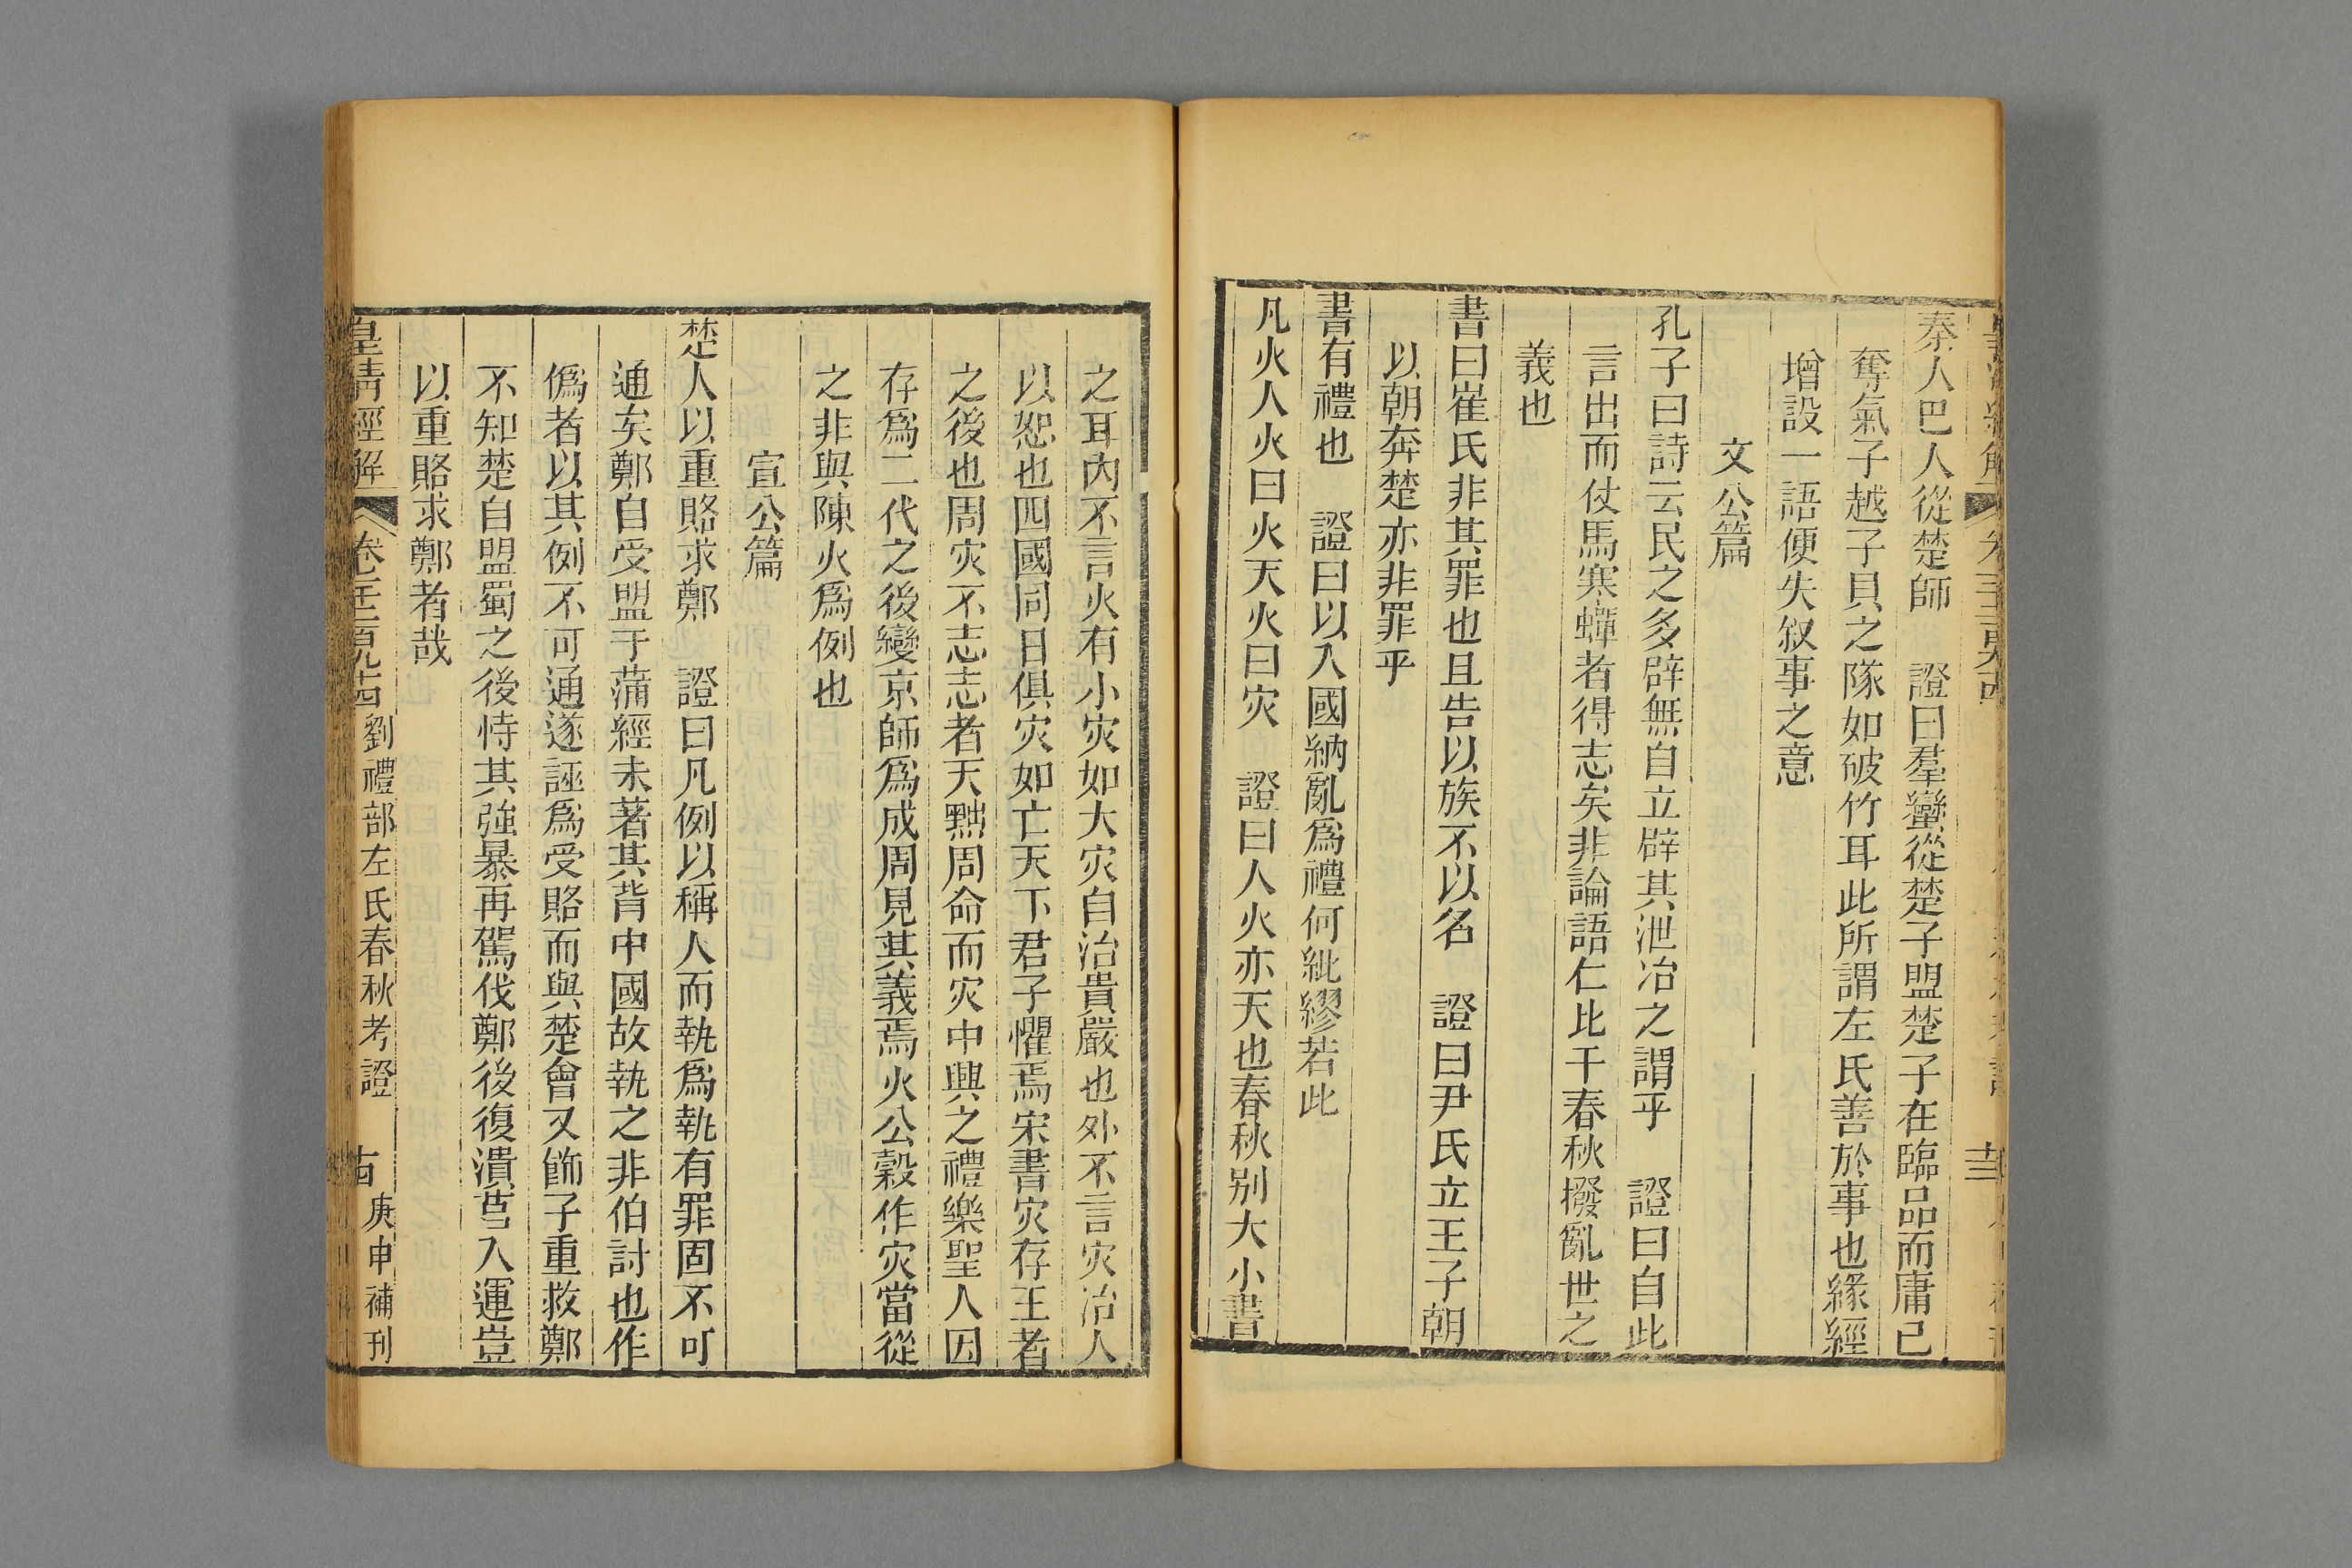 秦人巴人從楚師　證曰羣蠻從楚子盟楚子在臨品而庸已
奪氣子越子貝之隊如破竹耳此所謂左氏善於事也緣經
增設一語便失叙事之意
文公篇
孔子曰詩云民之多辟無自立辟其泄冶之謂乎　證曰自此
言出而仗馬寒蟬者得志矣非論語仁比干春秋撥亂世之
義也
書曰崔氏非其罪也且告以族不以名　證曰尹氏立王子朝
以朝奔楚亦非罪乎
書有禮也　證曰以入國納亂爲禮何紕繆若此
凡火人火曰火天火曰灾　證曰人火亦天也春秋别大小書
之耳內不言火有小灾如大灾自治貴嚴也外不言灾冶人
以恕也四國同日俱灾如亡天下君子懼焉宋書灾存王者
之後也周灾不志志者天黜周命而灾中興之禮樂聖人因
存爲二代之後變京師爲成周見其義焉火公穀作灾當從
之非與陳火爲例也
宣公篇
楚人以重賂求鄭　證曰凡例以稱人而執爲執有罪固不可
通矣鄭自受盟于蒲經未著其背中國故執之非伯討也作
僞者以其例不可通遂誣爲受賂而與楚會又飾子重救鄭
不知楚自盟蜀之後恃其強暴再駕伐鄭後復潰莒入運豈
以重賂求鄭者哉
皇清經解　卷　劉禮部左氏春秋考證　庚申補刊